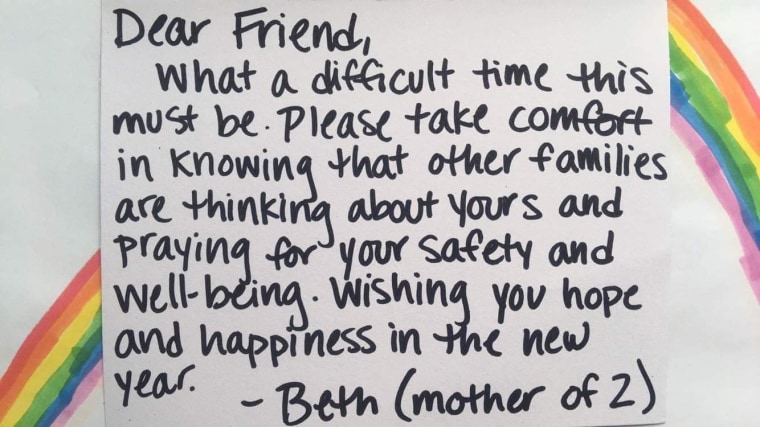 Dear Friend,
What a difficult time this
must be. Please take comfort
in knowing that other families
are thinking about yours and
praying for your safety and
well-being. Wishing you hope
and happiness in the new
year.
- Beth (mother of 2)